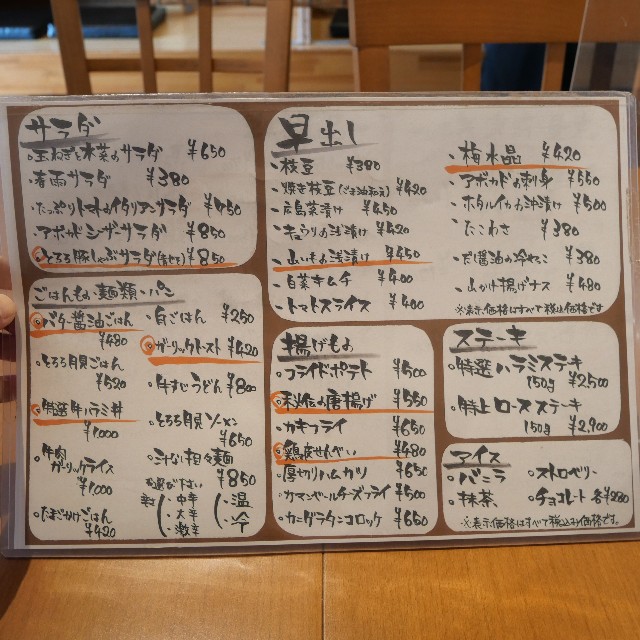 サラダ
・玉ねぎと水菜のサラダ ¥650
・春雨サラダ ¥380
・たっぷりトマトのイタリアンサラダ ¥750
・アボカドシーザーサラダ ¥850
・とろろ豚しゃぶサラダ ¥850
ごはんもの・麺類・パン
・バター醤油ごはん ¥480
・とろろ月見ごはん ¥520
・特選牛ハラミ丼 ¥1,000
・牛肉ガーリックライス ¥1,000
・たまごかけごはん ¥420
・白ごはん ¥250
・ガーリックトースト ¥420
・牛すじうどん ¥800
・とろろ月見ソーメン ¥650
・汁なし担々麺 ¥850
お選び下さい
辛さ ・中辛 ・大辛 ・激辛
・温 ・冷
早出し
・枝豆 ¥380
・焼き枝豆（ごま油和え） ¥420
・広島菜漬け ¥450
・キュウリの浅漬け ¥420
・山いもの浅漬け ¥450
・白菜キムチ ¥400
・トマトスライス ¥400
・梅水晶 ¥420
・アボカドの刺身 ¥550
・ホタルイカの沖漬け ¥500
・たこわさ ¥380
・だし醤油の冷やっこ ¥380
・山かけ揚げナス ¥480
※表示価格はすべて税込価格です
揚げもの
・フライドポテト ¥500
・秘伝の唐揚げ ¥550
・カキフライ ¥650
・鶏皮せんべい ¥480
・厚切りハムカツ ¥650
・カマンベールチーズフライ ¥500
・カニグラタンコロッケ ¥650
ステーキ
・特選ハラミステーキ
150g ¥2,500
・特上ロースステーキ
150g ¥2,900
アイス
・バニラ ・ストロベリー
・抹茶 ・チョコレート 各¥280
※表示価格はすべて税込価格です。